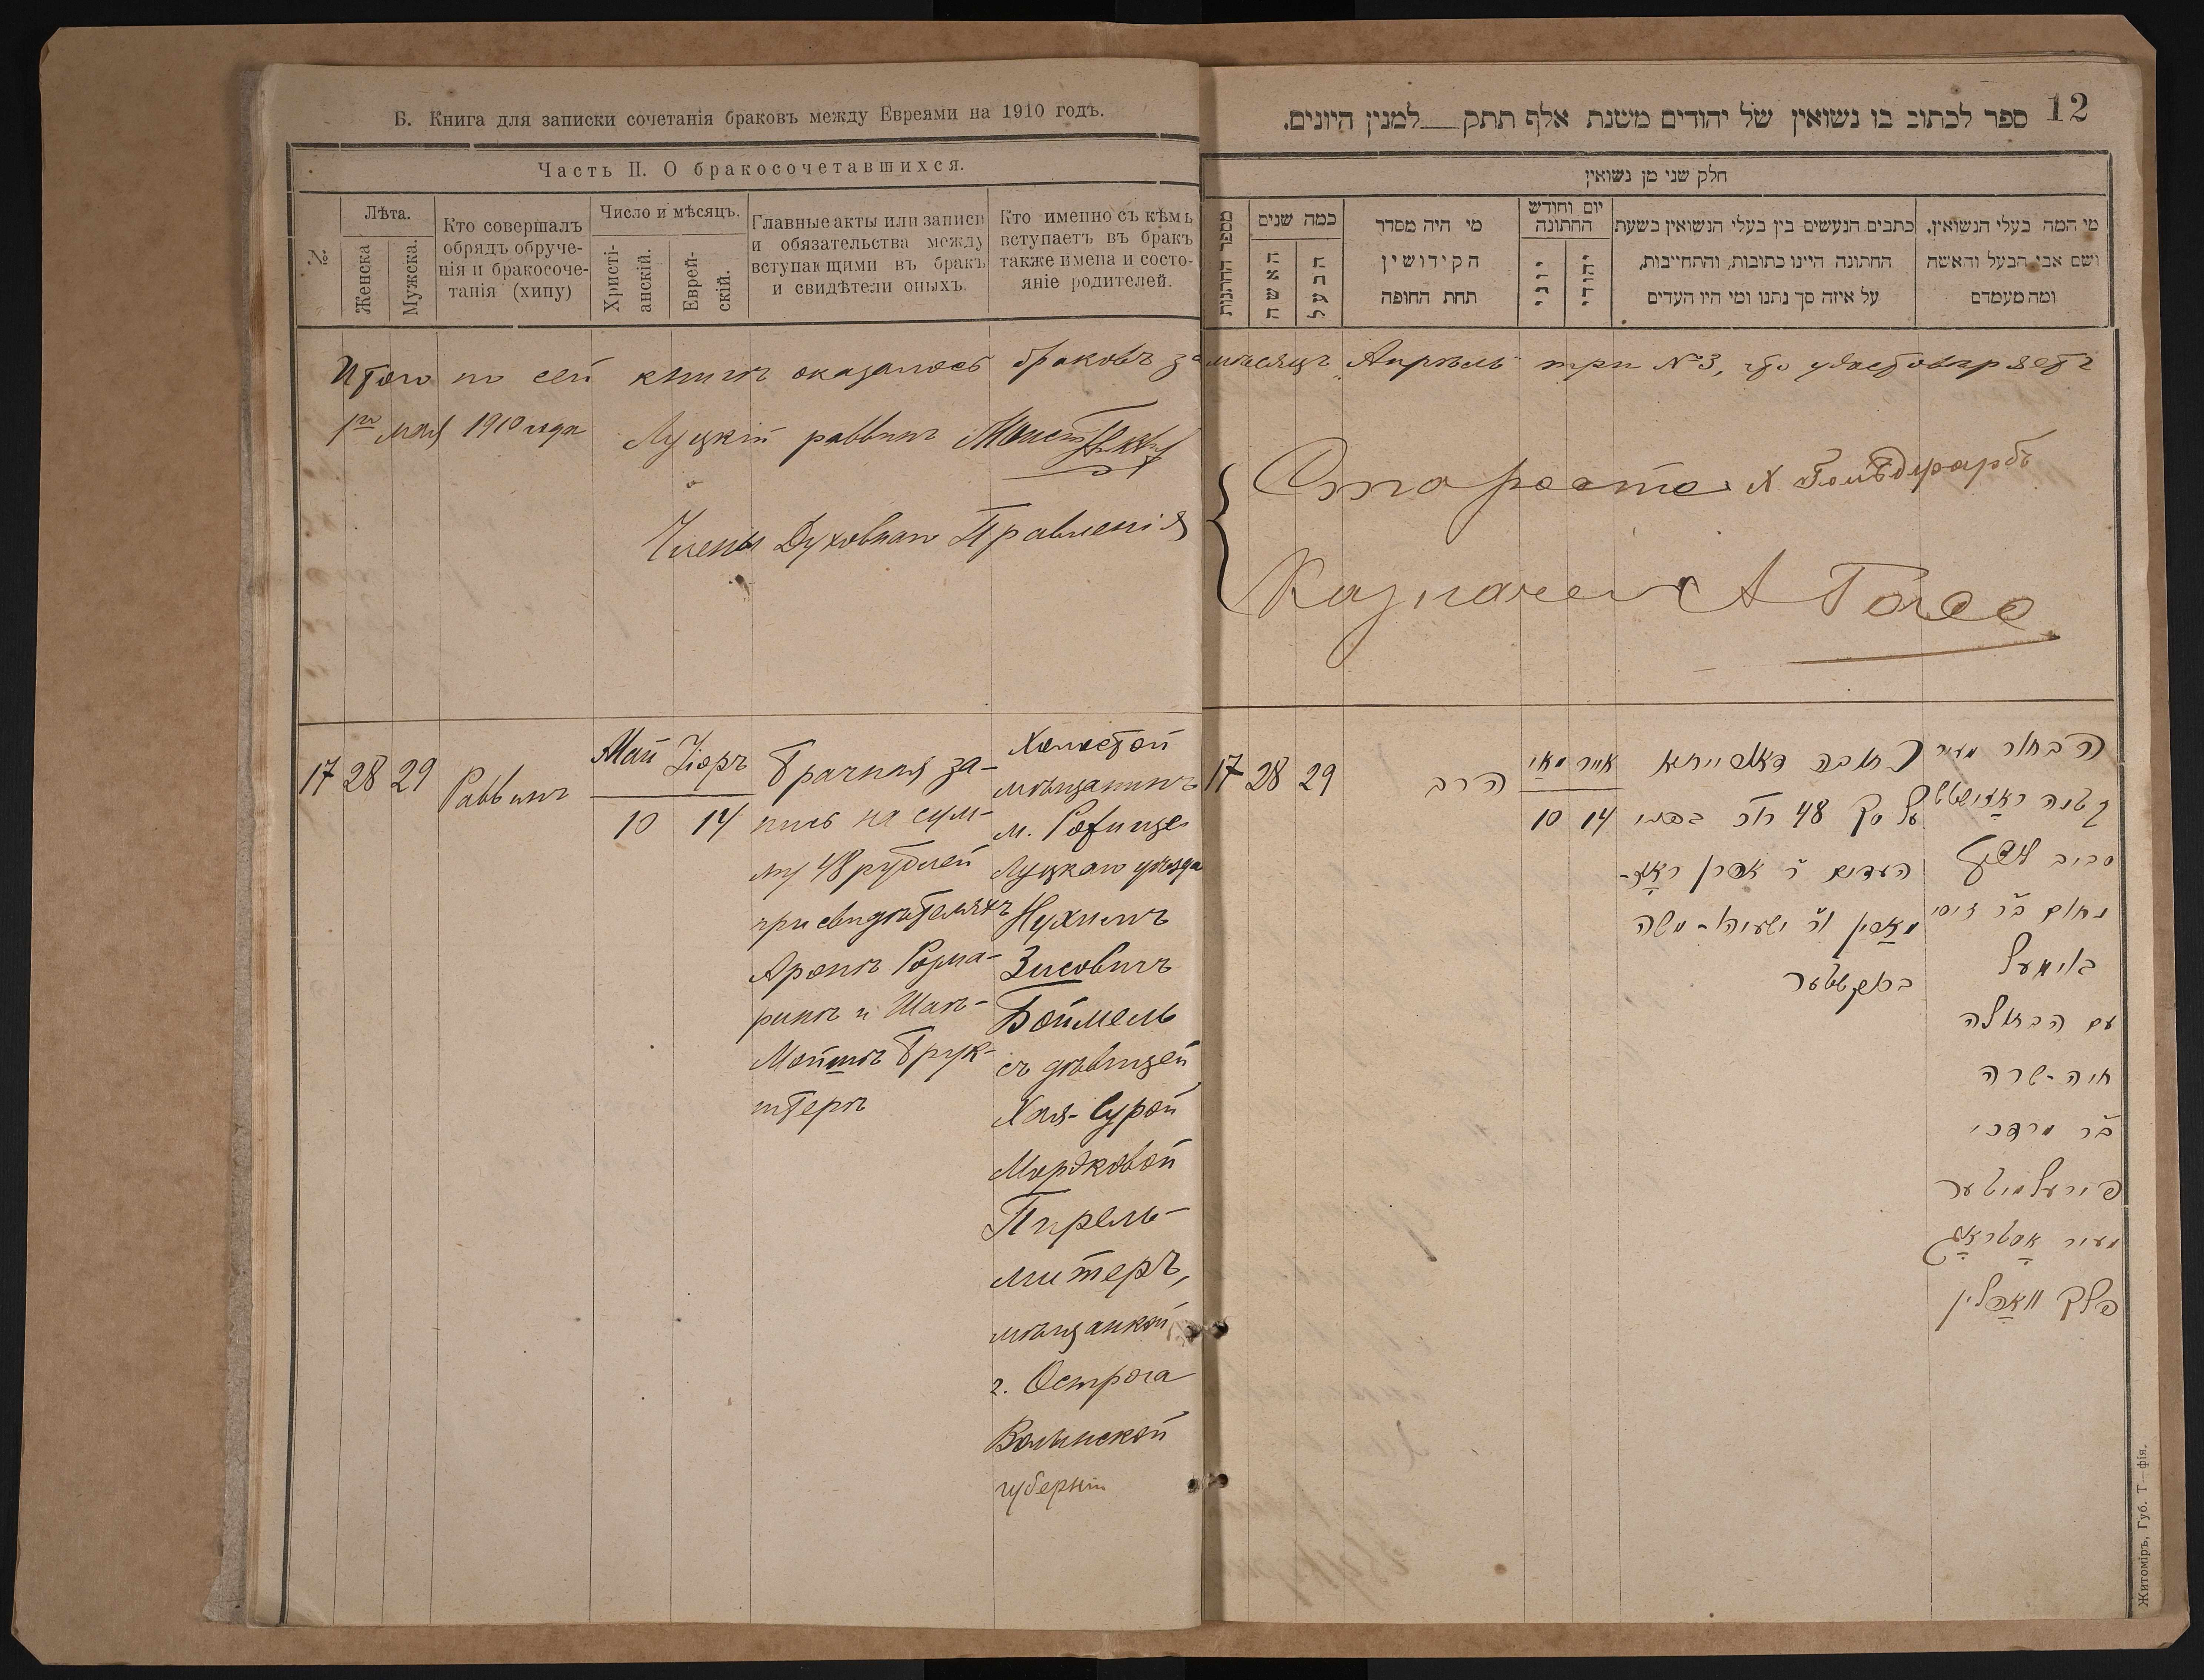 Б. Книга для записки сочетанія браковъ между Евреями на 1910 годъ.
Часть II. О бракосочетавшихся.
№
Лѣта.
Женска
Мужска.
Кто совершалъ
обрядъ обруче-
нія и бракосоче-
танія (хипу)
Число и мѣсяцъ.
Христі-
анскій.
Еврей-
скій.
Главные акты или записи
и обязательства между
вступающими въ бракъ
и свидѣтели оныхъ.
Кто именно съ кѣмъ
вступаетъ въ бракъ
также имена и состо-
яніе родителей.
12
ספר לכתוב בו נשואין של יהודים משנת אלף תתק למנין היונים.
חלק שני מן נשואין
מספר החתנות
כמה שנים
האשה
הבעל
מי היה מסדר
הקידושין
תחת החופה
יום וחודש
החתונה
יוני
יהודי
כתבים הנעשים בין בעלי הנשואין בשעת
החתונה היינו כתובות, והתחייבות,
על איזה סך נתנו ומי היו העדים
מי המה בעלי הנשואין,
ושם אבי הבעל והאשה
ומה מעמדם
Итого по сей книгѣ оказалось браковъ за мѣсяцъ Апрѣль три №3, что удостовѣряетъ
1го мая 1910 года Луцкій раввинъ
Члены Духовнаго Правленія
Староста Х. Гольдфарбъ
Казначей А
17 28 29
Раввинъ
Май Іоръ
10 14
Брачная за-
пись на сум-
му 48 рублей
при свидѣтеляхъ
Аронѣ
и Шаѣ-
Мойшѣ Брук-
штерѣ
Холостой
мѣщанинъ
м. Рожище
Луцкаго уѣзда
Нухимъ
Зисовичъ
Боймель
съ дѣвицей
Хая-Сурой
Мордковой
Пирель-
митеръ,
мѣщанкой
г. Острога
Волынской
губерніи
17 28 29
הרב
מאי אייר
10 14
כתובה
על סך 48
העדים ר'
ור' ישעיהו-משה
ברוקשטער
הבחור מעיר
קטנה ראזישטש
סביב לוצק
נחום ב"ר זיסי
בוימעל
עם הבתולה
חיה-שרה
ב"ר מרדכי
פירעלמיטער
מעיר אסטראג
פלך וואהלין
Житоміръ, Губ. Т—фія.